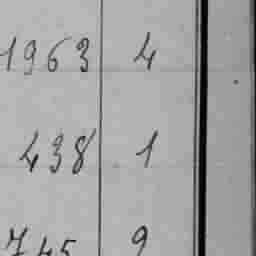 1963 4
438 1
745 9